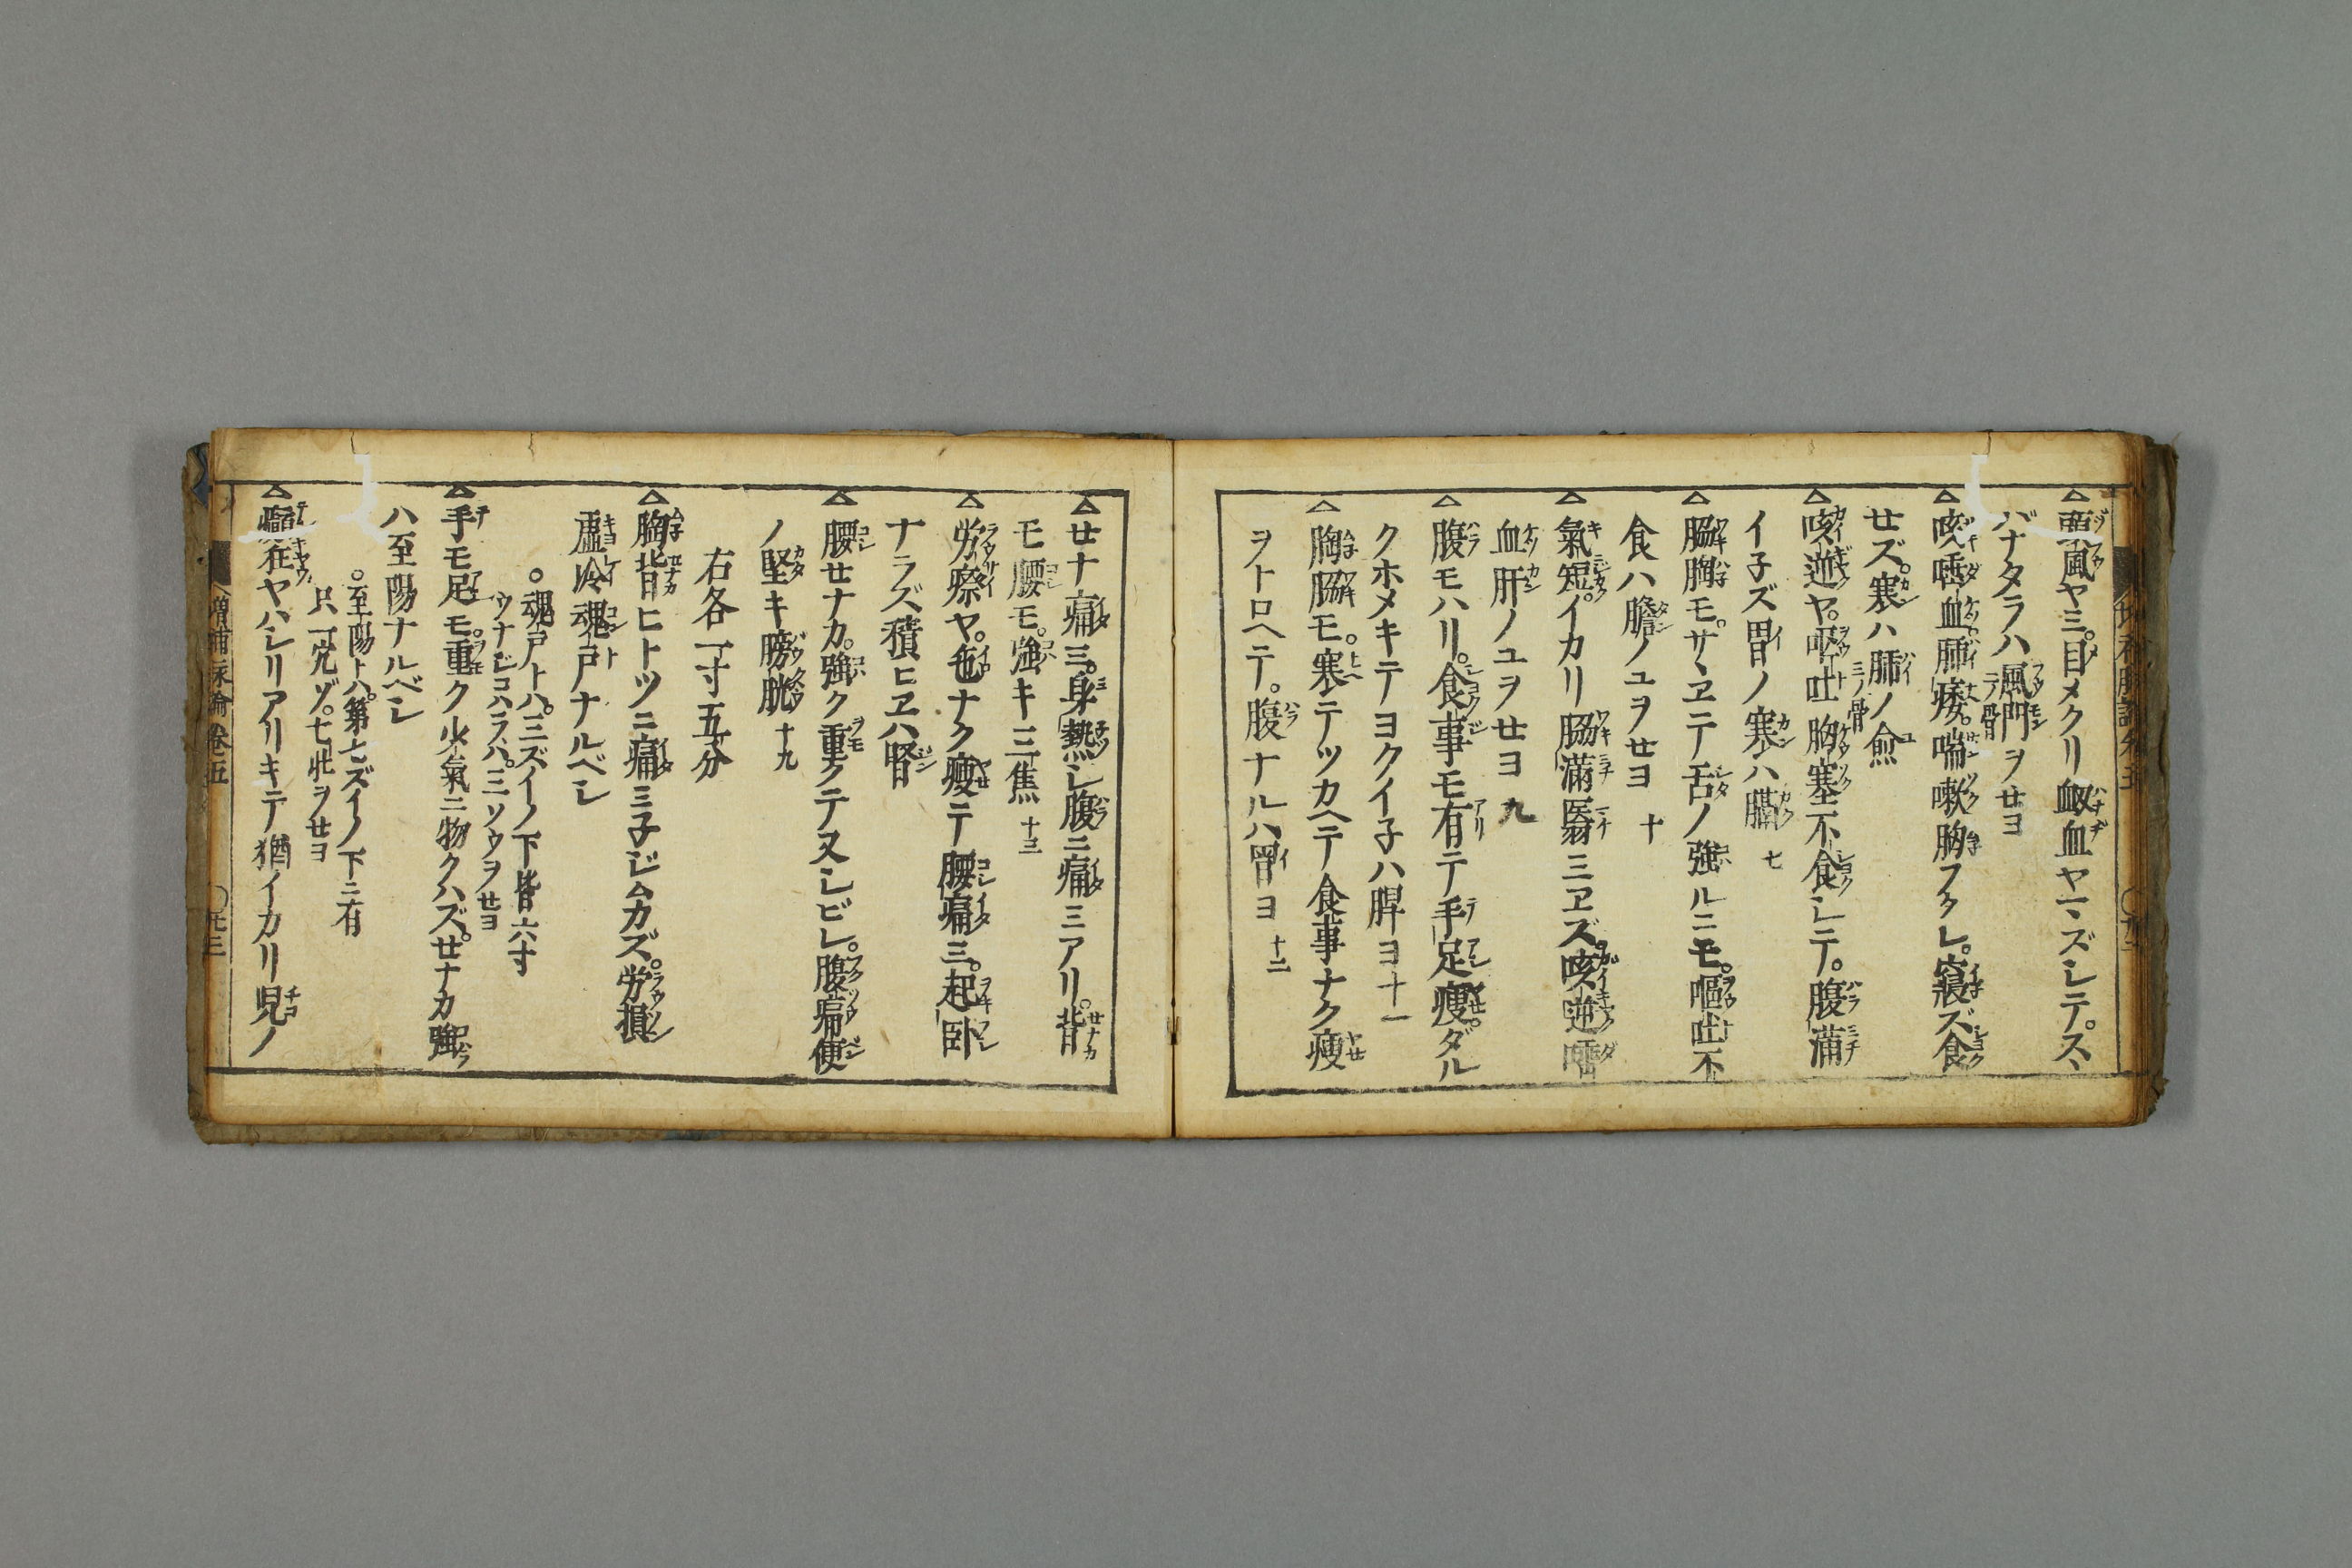 △頭風ヤミ。目メクリ衂血ヤマズシテ。スヽ
バナタラハ風門ヲせヨ
△咳唾血肺痿。喘嗽胸フクレ。寢ズ食
せズ。寒ハ肺ノ兪
△咳逆ヤ。嘔吐胸塞不食シテ。腹滿
イ子ズ胃ノ寒ハ膈 七
△脇胸モ。サヽヱテ舌ノ強ルニモ。嘔吐不
食ハ膽ノユヲせヨ 十
△氣短。イカリ脇滿翳ミヱズ。咳逆唾
血肝ノユヲせヨ 九
△腹モハリ。食事モ有テ手足痩。ダル
クホメキテヨクイ子ハ脾ヨ 十一
△胸脇モ。寒テツカヘテ食事ナク痩
ヲトロヘテ。腹ナルハ胃ヨ 十二
△せナ痛ミ。身熱シ腹ニ痛ミアリ。背
モ腰モ。強キ三焦 十三
△労瘵ヤ。色ナク痩テ腰痛ミ。起卧
ナラズ積ヒヱハ腎
△腰せナカ。強ク重クテ又シビレ。腹痛便
ノ堅キ膀胱 十九
右各一寸五分
△胸背ヒトツニ痛ミ子ジムカズ。労損
虚冷魂戸ナルベシ
○魂戸トハ。三ズイノ下皆六寸
ウナジコハラハ。三ソウヲせヨ
△手モ足モ。重ク少氣ニ物クハズ。せナカ強
ハ至陽ナルベシ
○至陽トハ。第七ズイノ下ニ有
只一穴ゾ。七壮ヲせヨ
△癲狂ヤハシリアリキテ猶イカリ児ノ
増補 論巻五